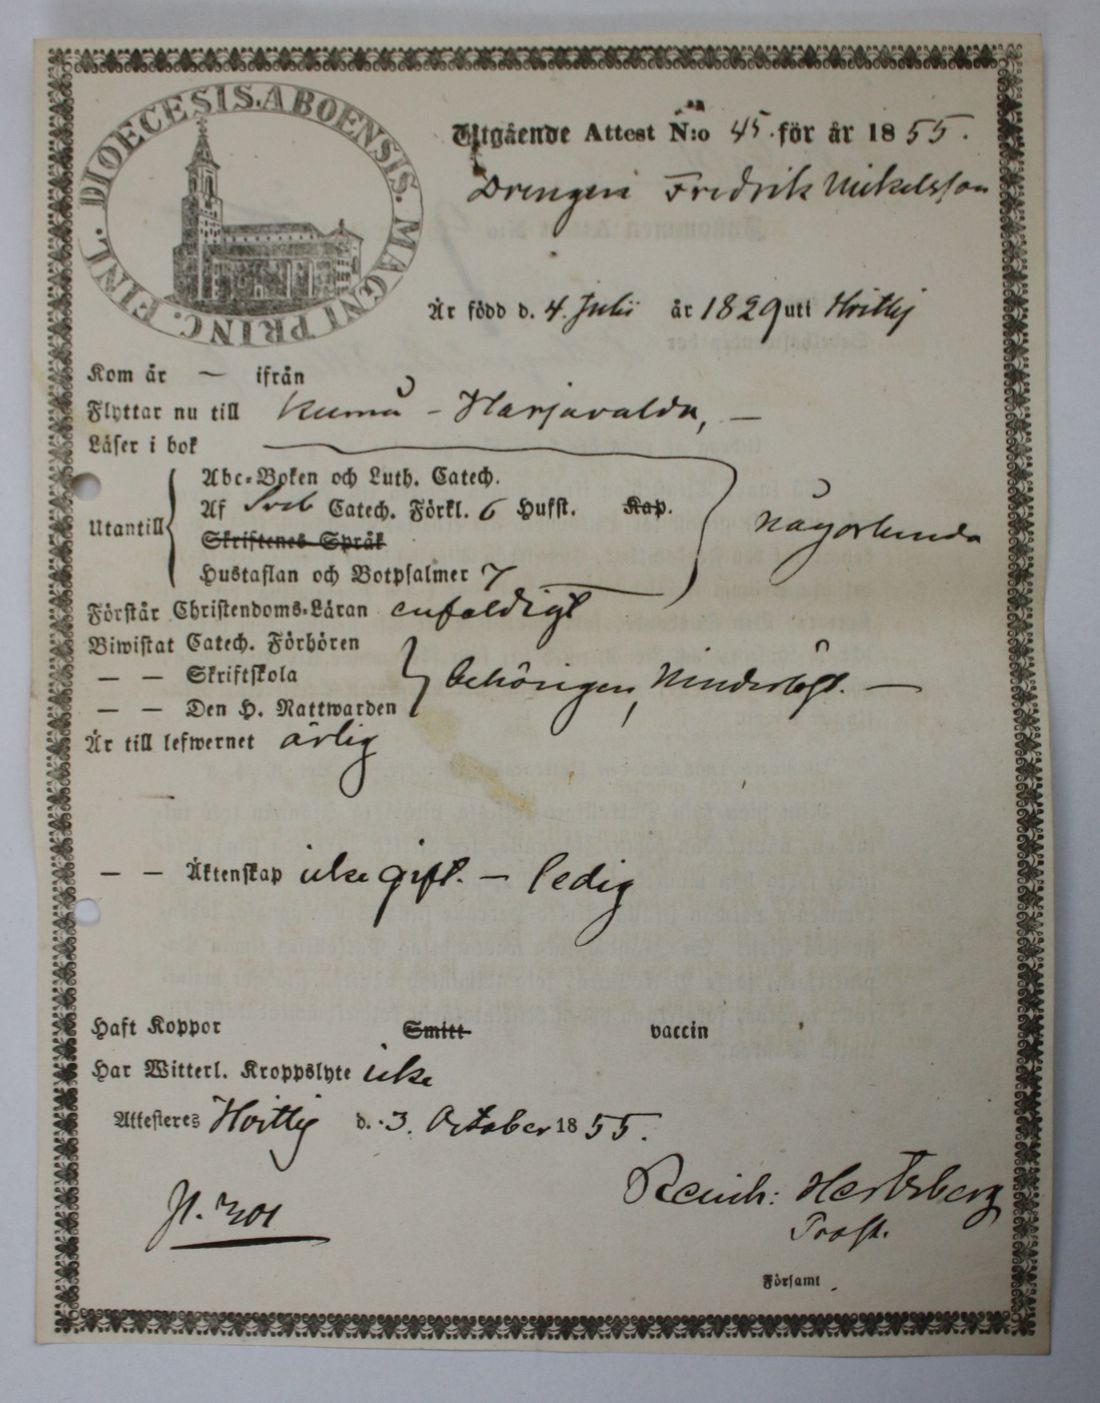 DIOECESIS. ABOENSIS. MAGNI PRINC. FINL.
Utgående Attest N:o 45. för år 1855.
Drengen Fredrik Mickelsson
Är född d. 4. Julii år 1829 uti Hvittis
Kom år — ifrån
Flyttar nu till Kumå - Harjavalda, —
Läser i bok
Abc-Boken och Luth. Catech.
Utantill Af Sveb Catech. Förkl. 6 Hufst. Kap. någorlunda
Skriftenes Språk
Hustaflan och Botpsalmer 7
Förstår Christendoms-Läran enfaldigt
Biwistat Catech. Förhören
— — Skriftskola behörigen,
— — Den H. Nattwarden
Är till lefwernet ärlig
— — Äktenskap icke gift. — ledig
Haft Koppor Smitt vaccin
Har Witterl. Kroppslyte icke
Attesteres Hvittis d. 3. October 1855.
Hertzberg
Prost.
p. 301
Församl